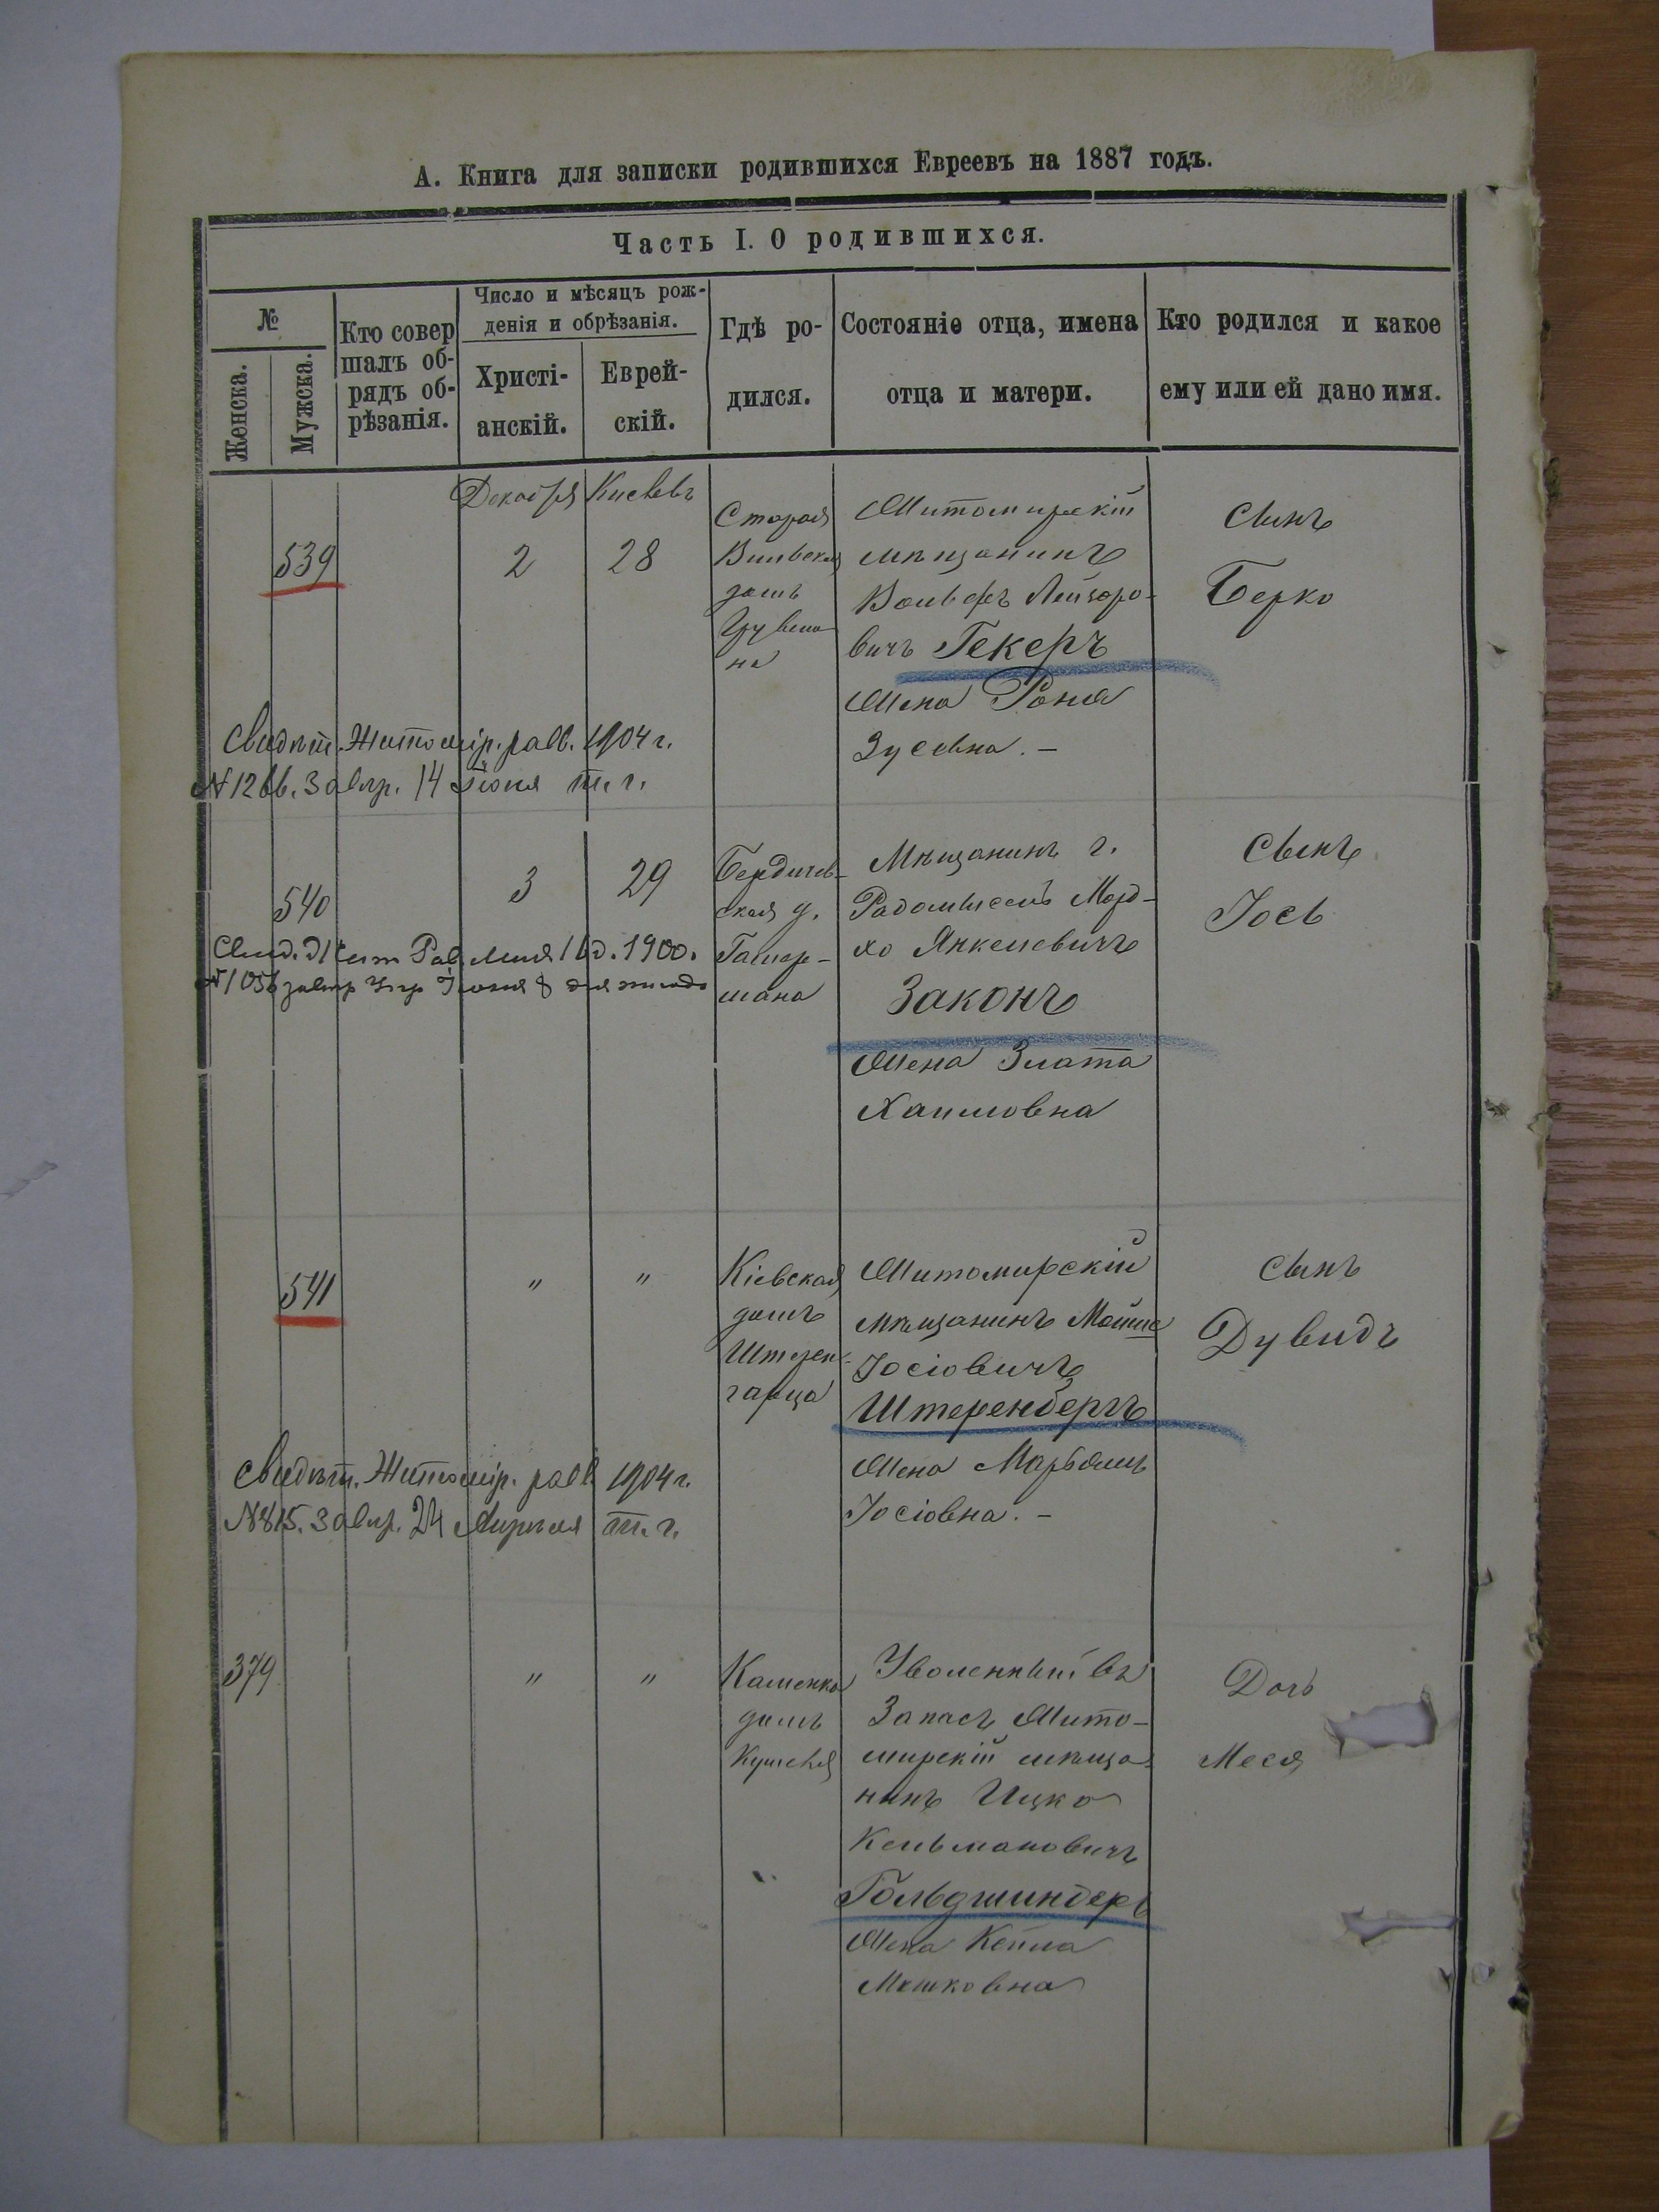 А. Книга для записки родившихся Евреевъ на 1887 годъ.
Часть I. О родившихся.
№
Женска.
Мужска.
Кто совер
шалъ об-
рядъ об-
рѣзанія.
Число и мѣсяцъ рож-
денія и обрѣзанія.
Христі-
анскій.
Еврей-
скій.
Гдѣ ро-
дился.
Состояніе отца, имена
отца и матери.
Кто родился и какое
ему или ей дано имя.
539
Декабря
2
Кислевъ
28
Старая
Вильская
домъ
Житомирскій
мѣщанинъ
Вольфъ Лейзоро-
вичъ Гекеръ
Жена Раня
Зусевна. –
Сынъ
Берко
Свидѣт. Житомір. равв. 1904 г.
№ 1266. Завѣр. 14 Іюня т. г.
540
3
29
Бердичев-
ская д.
Гамер-
мана
Мѣщанинъ г.
Радомысль Морд-
хо Янкелевичъ
Законъ
Жена Злата
Хаимовна
Сынъ
Іось
Свид. Жит Рав. 1900.
№ 1056 Іюня 8 дня
541
"
"
Кіевская
домъ
Штерен-
гарца
Житомирскій
мѣщанинъ Мойше
Іосіовичъ
Штеренбергъ
Жена Марьямъ
Іосіовна. –
Сынъ
Дувидъ
Свидѣт. Житомір. равв. 1904 г.
№ 815. Завѣр. 24 Апрѣля т. г.
379
"
"
Каменка
домъ
Уволенный въ
Запасъ Жито-
мирскій мѣща-
нинъ Ицко
Кельмановичъ
Гольдшиндеръ
Жена Кейла
Мошковна
Дочь
Меся